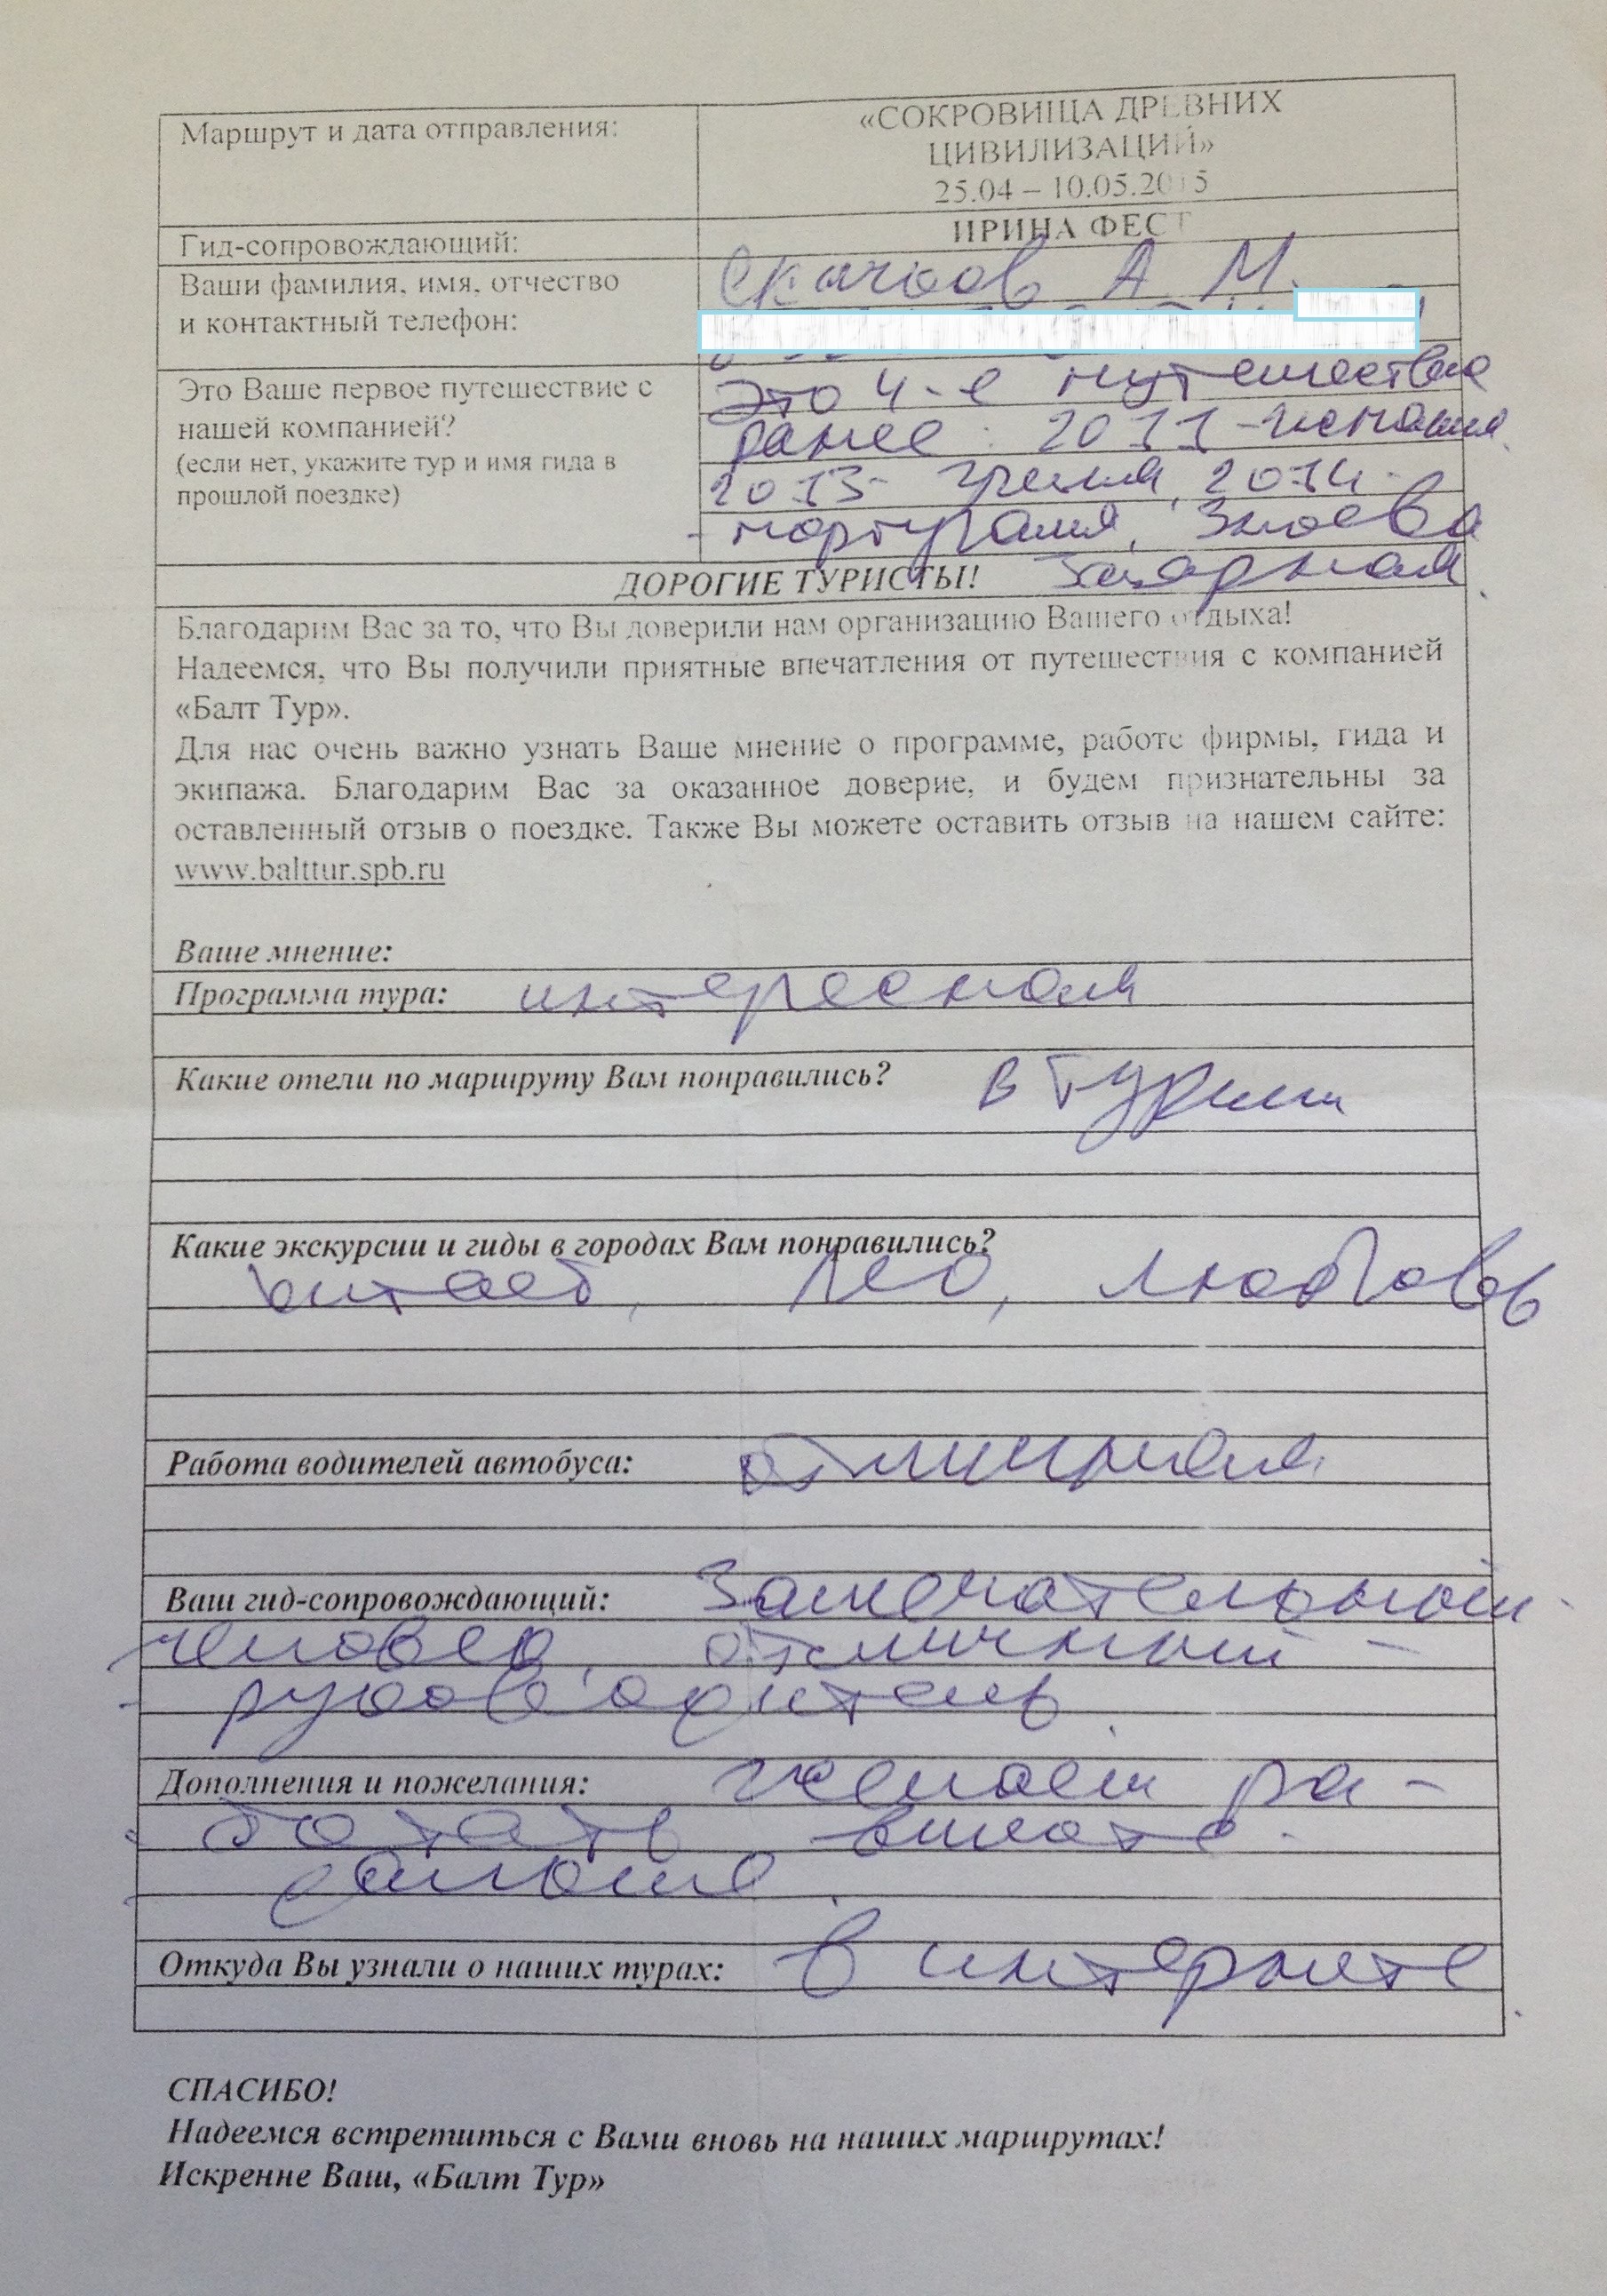 Маршрут и дата отправления:
«СОКРОВИЩА ДРЕВНИХ
ЦИВИЛИЗАЦИЙ»
25.04 – 10.05.2015
Гид-сопровождающий:
ИРИНА ФЕСТ
Ваши фамилия, имя, отчество
и контактный телефон:
А. М.
Это Ваше первое путешествие с
нашей компанией?
(если нет, укажите тур и имя гида в
прошлой поездке)
Это 4-е путешествие
ранее: 2011 - Испания
2013 - Греция, 2014 -
- Португалия, Зноева
Захарная
ДОРОГИЕ ТУРИСТЫ!
Благодарим Вас за то, что Вы доверили нам организацию Вашего отдыха!
Надеемся, что Вы получили приятные впечатления от путешествия с компанией
«Балт Тур».
Для нас очень важно узнать Ваше мнение о программе, работе фирмы, гида и
экипажа. Благодарим Вас за оказанное доверие, и будем признательны за
оставленный отзыв о поездке. Также Вы можете оставить отзыв на нашем сайте:
www.balttur.spb.ru
Ваше мнение:
Программа тура: интересная
Какие отели по маршруту Вам понравились? в Турции
Какие экскурсии и гиды в городах Вам понравились?
Лео, Любовь
Работа водителей автобуса: отличная
Ваш гид-сопровождающий: Замечательный
человек, отличный -
- руководитель.
Дополнения и пожелания: желаем ра-
- ботать вместе
- дальше.
Откуда Вы узнали о наших турах: в интернете
СПАСИБО!
Надеемся встретиться с Вами вновь на наших маршрутах!
Искренне Ваш, «Балт Тур»